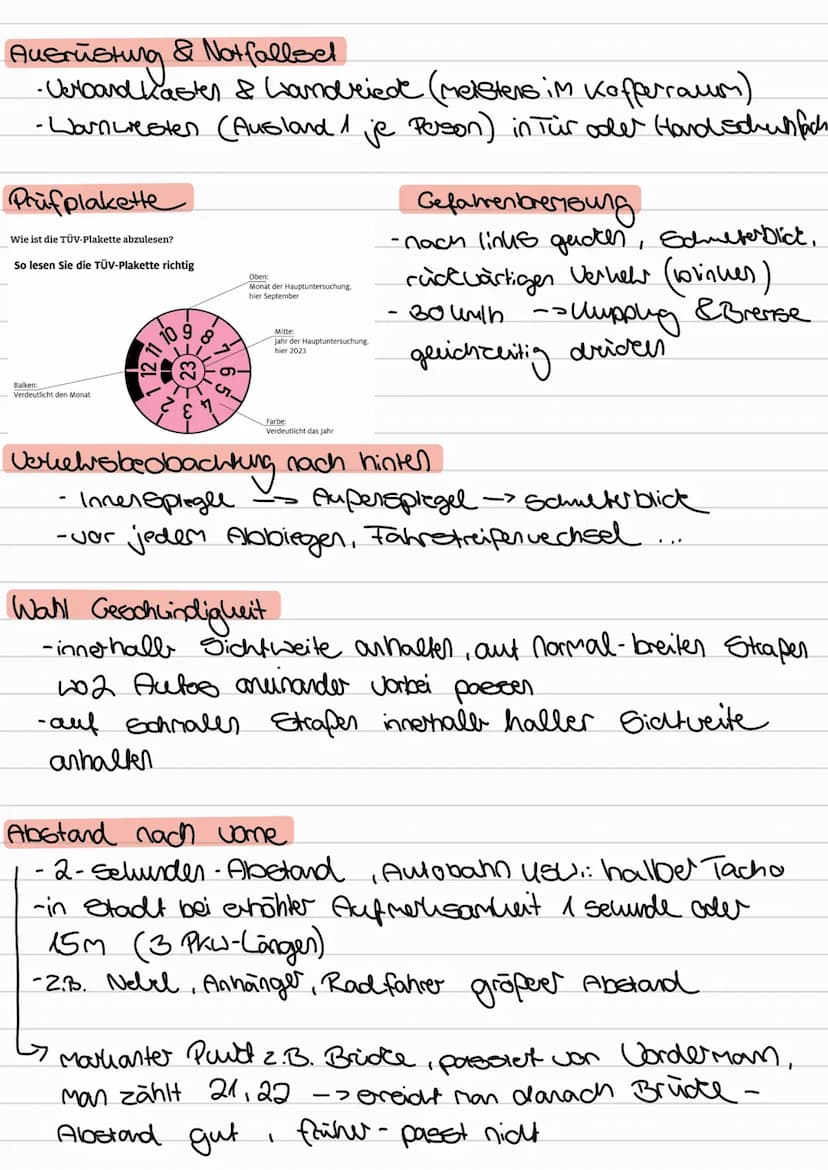 Ausrüstung & Notfallset
- Verbandkasten & Warndreieck (meistens im Kofferraum)
- Warnwesten (Ausland 1 je Person) in Tür oder Handschuhfach
Prüfplakette
Wie ist die TÜV-Plakette abzulesen?
So lesen Sie die TÜV-Plakette richtig
Oben:
Monat der Hauptuntersuchung,
hier September
Mitte:
Jahr der Hauptuntersuchung,
hier 2023
Balken:
Verdeutlicht den Monat
Farbe:
Verdeutlicht das Jahr
1 2 3 4 5 6 7 8 9 10 11 12
23
Gefahrenbremsung
- nach links gucken, Schulterblick,
rückwärtigen Verkehr (winken)
- 30 km/h --> Kupplung & Bremse
gleichzeitig drücken
Verkehrsbeobachtung nach hinten
- Innenspiegel -> Außenspiegel -> Schulterblick
- vor jedem Abbiegen, Fahrstreifenwechsel ...
Wahl Geschwindigkeit
- innerhalb Sichtweite anhalten, auf normal-breiten Straßen
wo 2 Autos aneinander vorbei passen
- auf schmalen Straßen innerhalb halber Sichtweite
anhalten
Abstand nach vorne
- 2-Sekunden-Abstand, Autobahn usw.: halber Tacho
- in Stadt bei erhöhter Aufmerksamkeit 1 Sekunde oder
15m (3 PKW-Längen)
- z.B. Nebel, Anhänger, Radfahrer größerer Abstand
-> markanter Punkt z.B. Brücke, passiert von Vordermann,
man zählt 21, 22 --> ereicht man danach Brücke -
Abstand gut, früher - passt nicht